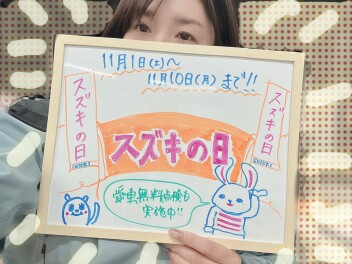 11月1日(土)〜
11月10日(月)まで!!
スズキの日
SUZUKI
スズキの日
スズキの日
SUZUKI
愛車無料点検も
実施中!!